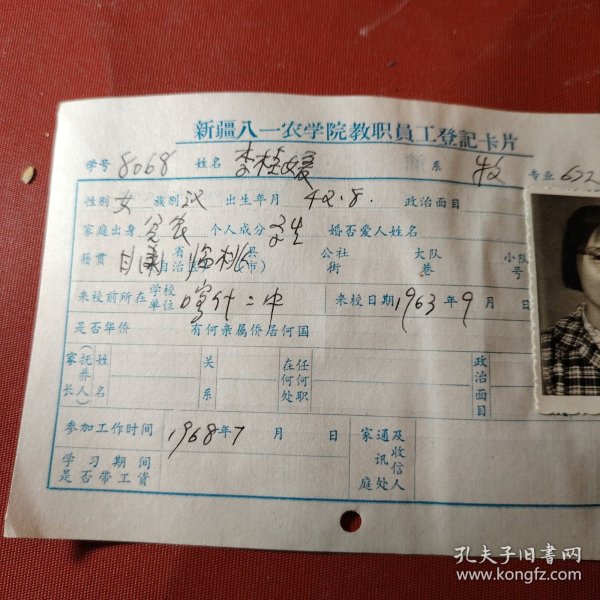 新疆八一农学院教职員工登記卡片
学号 8068 姓名 李桂媛 系 牧 专业 622
性别 女 族别 汉 出生年月 42.8. 政治面目
家庭出身 贫农 个人成分 学生 婚否爱人姓名
籍贯 甘肃 省 自治区 临洮 县(市) 公社 街 大队 巷 小队 号
来校前所在 学校 单位 喀什二中 来校日期 1963 年 9 月 日
是否华侨 有何亲属侨居何国
家长(抚养人) 姓名 关系 在何处任何职 政治面目
参加工作时间 1968 年 7 月 日 家庭通讯处及收信人
学习期间是否带工资
孔夫子旧书网
www.kongfz.com